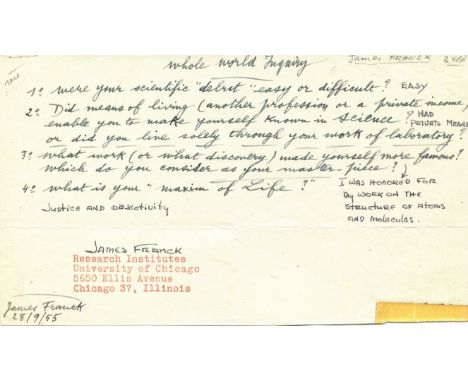 James FRANCK
whole world Inquiry
rare
1º were your scientific "debut" easy or difficult? EASY
2º Did means of living (another profession or a private income,
enable you to make yourself known in Science? I HAD
PRIVATE MEANS
or did you live solely through your work of laboratory?
3º what work (or what discovery) made yourself more famous?
which do you consider as your master-piece?
I WAS HONORED FOR
My WORK ON THE
STRUCTURE OF ATOMS
AND MOLECULES.
4º what is your "maxim of Life?"
JUSTICE AND OBJECTIVITY
JAMES FRANCK
Research Institutes
University of Chicago
5650 Ellis Avenue
Chicago 37, Illinois
James Franck
28/9/55